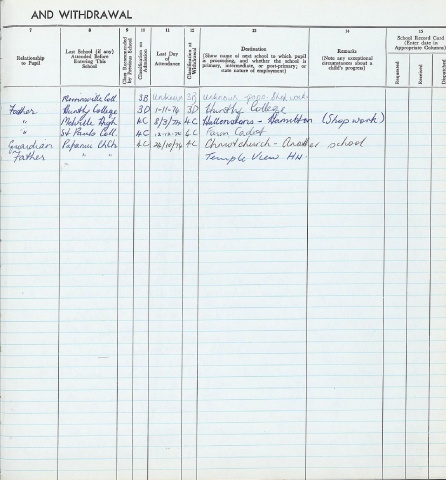 AND WITHDRAWAL
7 8 9 10 11 12 13 14 15
Relationship to Pupil
Last School (if any) Attended Before Entering This School
Class Recommended by Previous School
Classification on Admission
Last Day of Attendance
Classification at Withdrawal
Destination
(Show name of next school to which pupil is proceeding, and whether the school is primary, intermediate, or post-primary; or state nature of employment)
Remarks
(Note any exceptional circumstances about a child's progress)
School Record Card
(Enter date in Appropriate Column)
Requested Received Dispatched
Morrinsville Coll. 3B Unknown 3B Unknown Shop work
Father Huntly College 3D 1-11-74 3D Huntly College
" Melville High 4C 8/3/74 4C Hamilton (Shop work)
" St Pauls Coll. 4C 12-12-74 4C Cadet
Guardian Papanui ChCh 4C 24/10/74 4C Christchurch - Another school
Father " " Temple View HN.